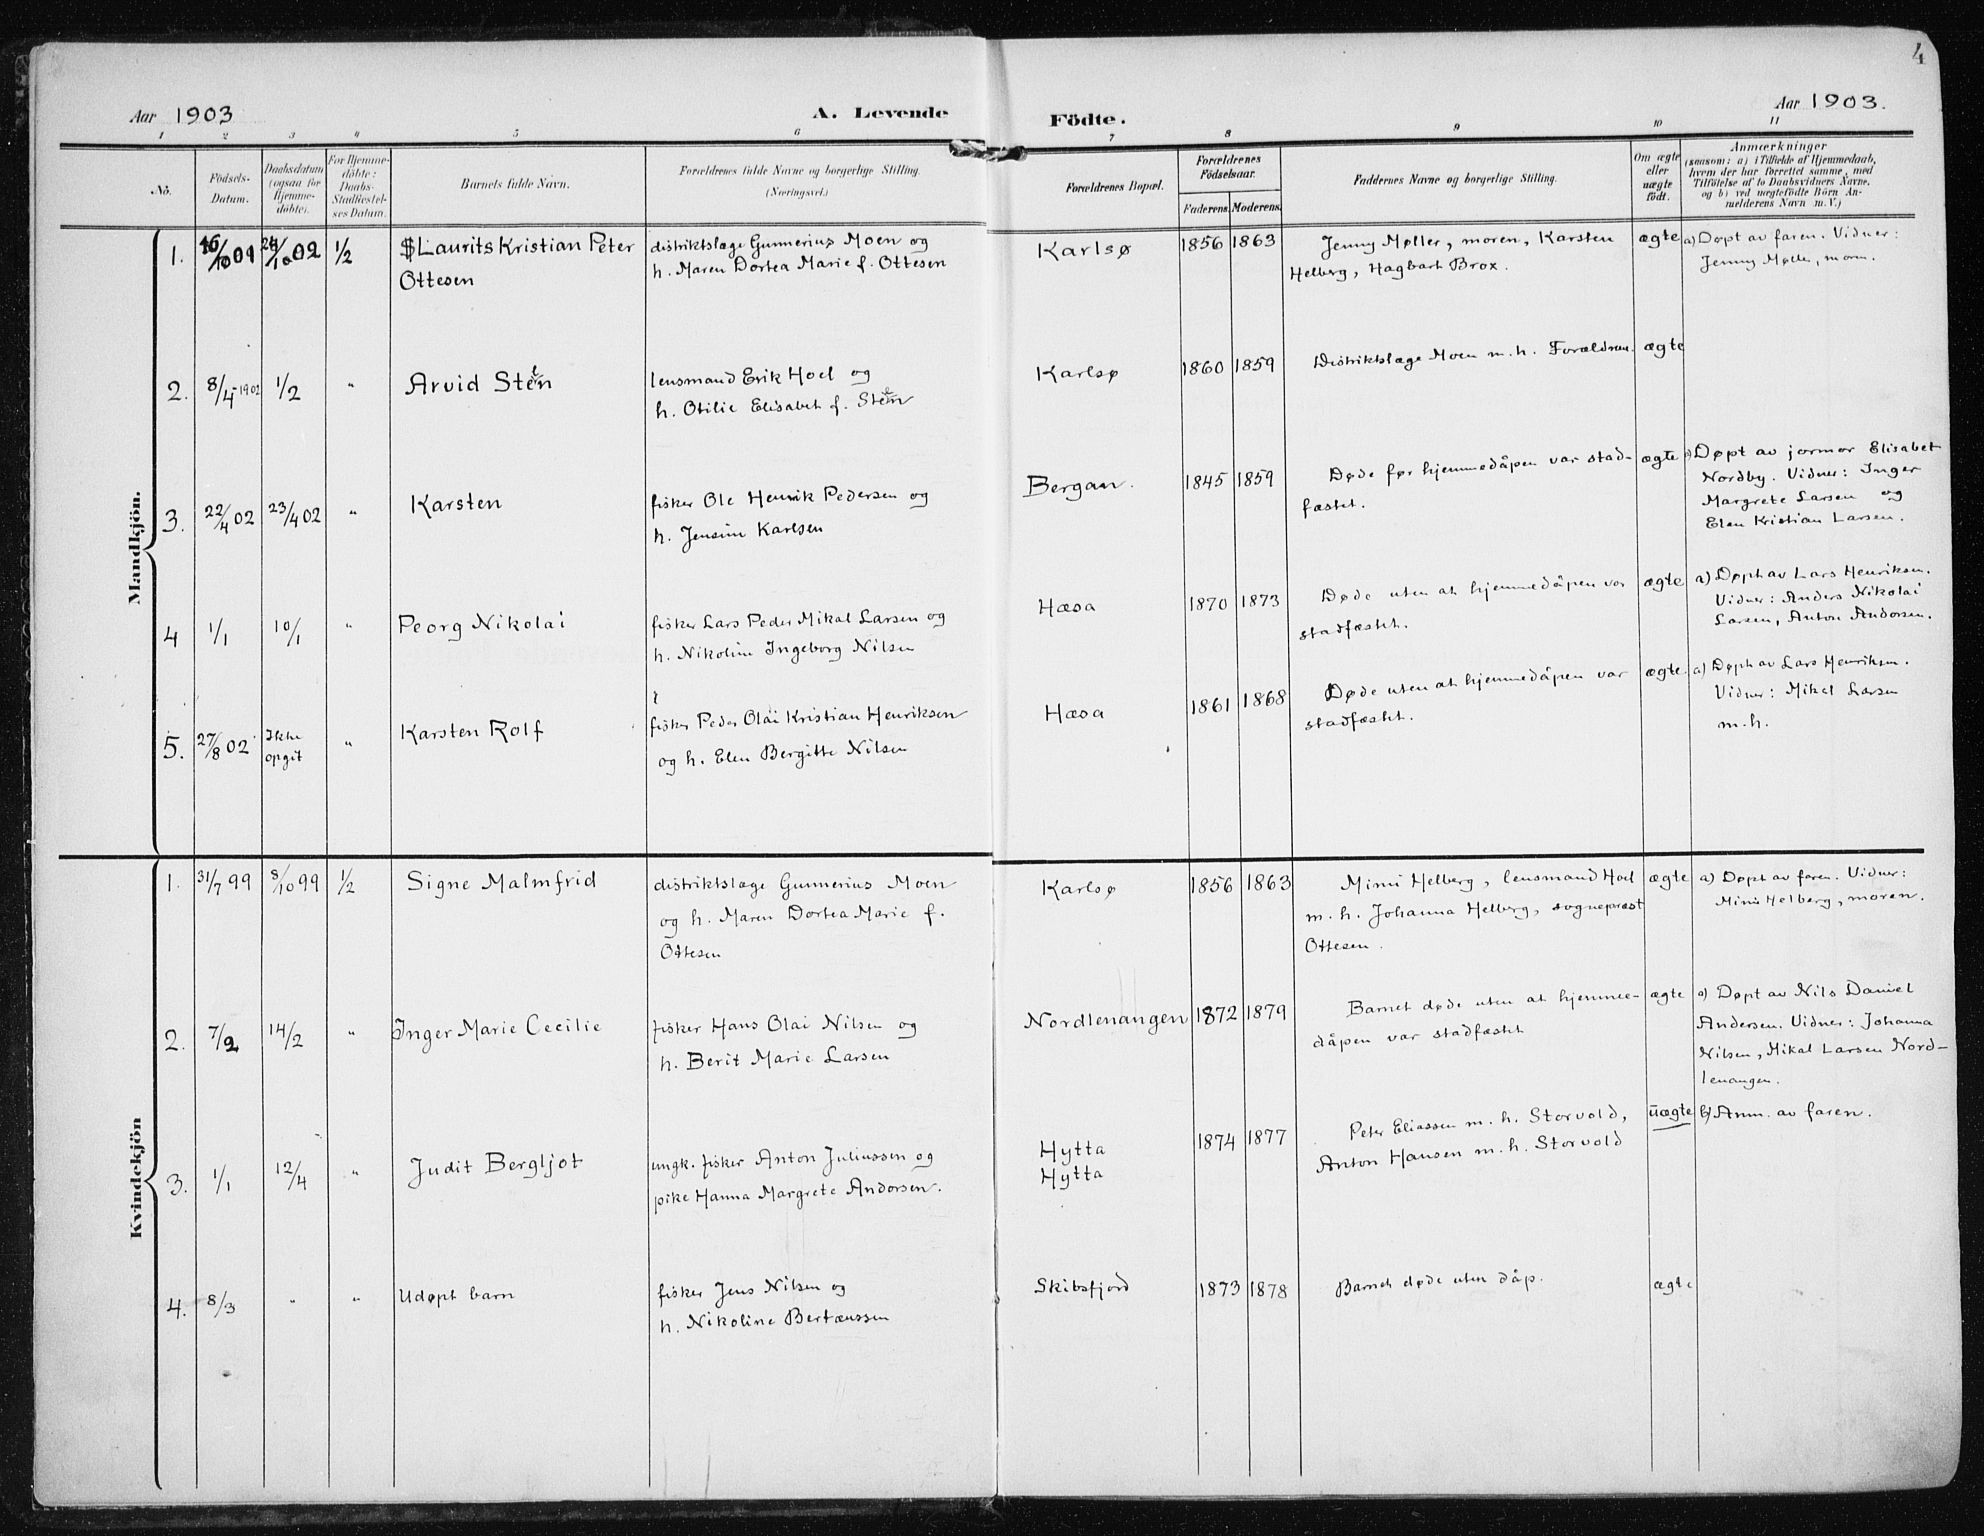 4
Aar 1903
A. Levende Födte.
Aar 1903.
1 2 3 4 5 6 7 8 9 10 11
No.
Födsels-
Datum.
Daabsdatum
(ogsaa for
Hjemme-
döbte).
For Hjemme-
döbte:
Daabs-
Stadfæstel-
ses Datum.
Barnets fulde Navn.
Forældrenes fulde Navne og borgerlige Stilling.
(Næringsvei.)
Forældrenes Bopæl.
Forældrenes
Födselsaar.
Faderens. Moderens.
Faddernes Navne og borgerlige Stilling.
Om ægte
eller
uægte
födt.
Anmærkninger
(saasom: a) i Tilfælde af Hjemmedaab,
hvem der har forrettet samme, med
Tilföielse af to Daabsvidners Navne,
og b) ved uægtefödte Börn An-
melderens Navn m. V.)
Mandkjön.
1. 1/2 Laurits Kristian Peter
Ottesen
distriktslæge Gunnerius Moen og
h. Maren Dortea Marie f. Ottesen
Karlsø 1856 1863
Jenny Møller, moren, Karsten
Helberg, Hagbart Brox.
ægte
a) Døpt av faren. Vidner:
Jenny Møller, moren.
2. 8/4-1902 1/2 " Arvid Steen
lensmand Erik Hoel og
h. Otilie Elisabet f. Steen
Karlsø 1860 1859
Distriktslæge Moen m. h. Forældrene.
ægte
3. 22/4 02 23/4 02 " Karsten
fisker Ole Henrik Pedersen og
h. Jensine Karlsen
Bergan. 1845 1859
Døde før hjemmedåpen var stad-
fæstet.
ægte
a) Døpt av jormor Elisabet
Nordby. Vidner: Inger
Margrete Larsen og
Elen Kristian Larsen.
4 1/1 10/1 " Peorg Nikolai
fisker Lars Peder Mikal Larsen og
h. Nikoline Ingeborg Nilsen
Hæsa 1870 1873
Døde uten at hjemmedåpen var
stadfæstet.
ægte
a) Døpt av Lars Henriksen.
Vidner: Anders Nikolai
Larsen, Anton Andorsen.
5. 27/8 02 Ikke
opgit
" Karsten Rolf
fisker Peder Olai Kristian Henriksen
og h. Elen Bergitte Nilsen
Hæsa 1861 1868
Døde uten at hjemmedåpen var
stadfæstet.
ægte.
a) Døpt av Lars Henriksen.
Vidner: Mikal Larsen
m. h.
Kvindekjön
1. 31/7 99 8/10 99 1/2 Signe Malmfrid
distriktslæge Gunnerius Moen
og h. Maren Dortea Marie f.
Ottesen
Karlsø 1856 1863
Mimi Helberg, lensmand Hoel
m. h. Johanna Helberg, sogneprest
Ottesen.
ægte
a) Døpt av faren. Vidner:
Mimi Helberg, moren.
2. 7/2 14/2 " Inger Marie Cecilie
fisker Hans Olai Nilsen og
h. Berit Marie Larsen
Nordlenangen 1872 1879
Barnet døde uten at hjemme-
dåpen var stadfæstet
ægte
a) Døpt av Nils Daniel
Andersen. Vidner: Johanna
Nilsen, Mikal Larsen Nord-
lenangen.
3. 1/1 12/4 " Judit Bergljot
ungk. fisker Anton Juliussen og
pike Hanna Margrete Andorsen.
Hytta
Hytta
1874 1877
Peter Eliassen m. h. Storvold,
Anton Hansen m. h. Storvold
uægte
b) Anm. av faren.
4. 8/3 " " Udøpt barn
fisker Jens Nilsen og
h. Nikoline Bertæussen
Skibsfjord 1873 1878
Barnet døde uten dåp.
ægte